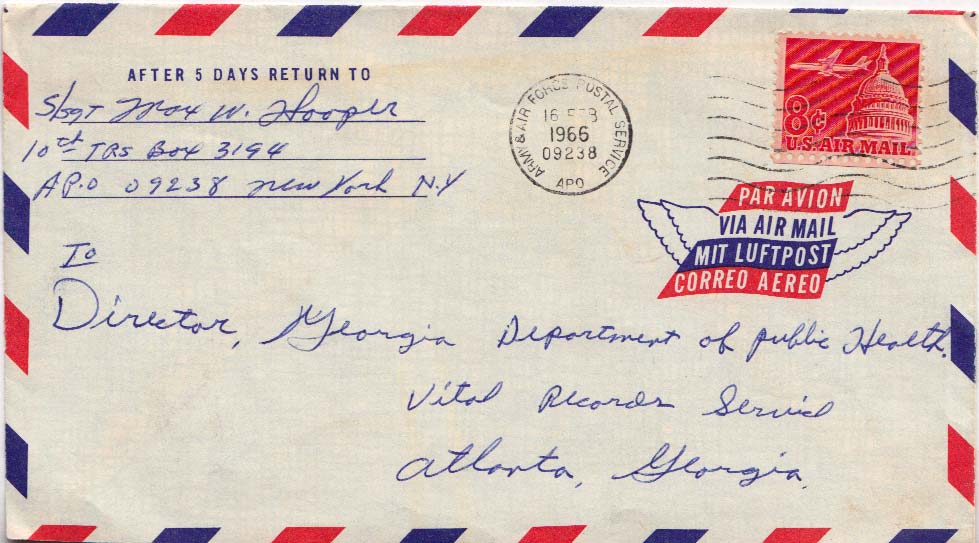 AFTER 5 DAYS RETURN TO
S/Sgt Max W. Hooper
10th TRS Box 3194
A P.O 09238 New York N.Y
ARMY & AIR FORCE POSTAL SERVICE
16 FEB
1966
09238
APO
8¢
U.S. AIR MAIL
PAR AVION
VIA AIR MAIL
MIT LUFTPOST
CORREO AEREO
To
Director, Georgia Department of public Health.
Vital Records Service
Atlanta, Georgia.